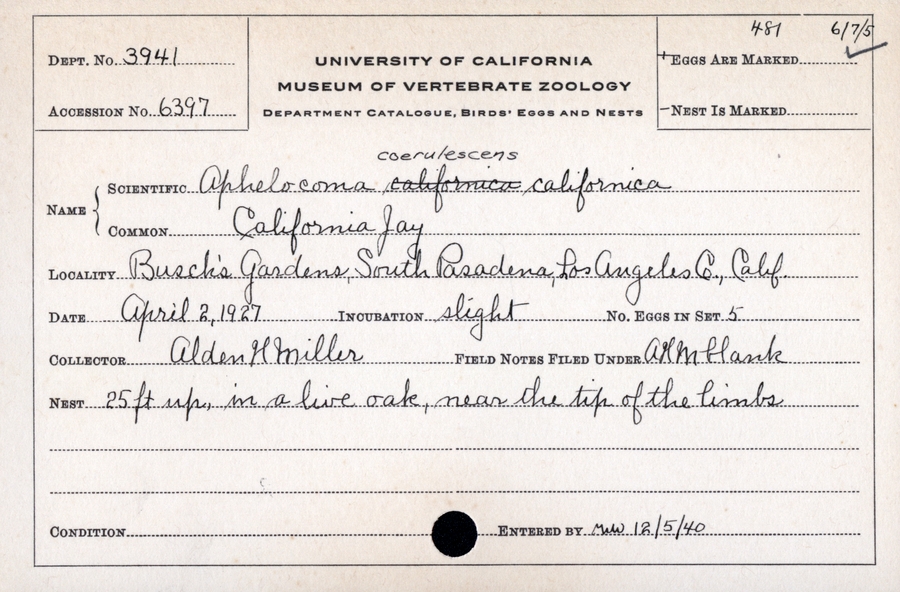 481 6/7/5
Dept. No. 3941
UNIVERSITY OF CALIFORNIA
Eggs Are Marked
MUSEUM OF VERTEBRATE ZOOLOGY
Accession No. 6397
Department Catalogue, Birds' Eggs and Nests
Nest Is Marked
coerulescens
Name { Scientific Aphelocoma californica californica
Common California Jay
Locality Busch's Gardens, South Pasadena, Los Angeles Co., Calif.
Date April 2, 1927 Incubation slight No. Eggs in Set 5
Collector Alden H Miller Field Notes Filed Under AHM blank
Nest 25 ft up, in a live oak, near the tip of the limbs
Condition Entered by 12/5/40